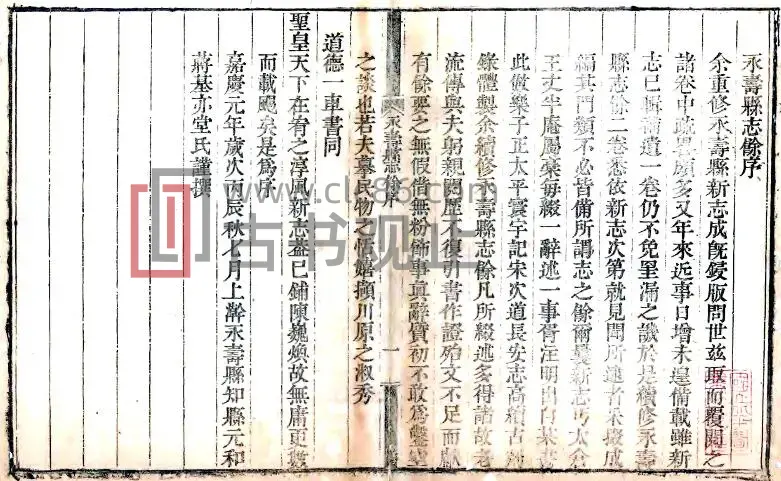 永壽縣志餘序
余重修永壽縣新志成旣鋟版問世茲
而覆閱之
諸卷中疏畧頗多又年來近事日增未遑備載雖新
志已輯補遺一卷仍不免罣漏之譏於是續修永壽
縣志餘二卷悉依新志次第就見聞所逮者采掇成
編其門類不必皆備所謂志之餘爾曩新志
王丈半庵屬稾每綴一辭述一事胥注明出自某書
此倣樂子正太平寰宇記宋次道長安志高續古剡
錄體製余續修永壽縣志餘凡所綴述多得諸故老
流傳與夫躬親閱歷不復引書作證殆文不足而獻
有餘要之無假借無粉飾事眞辭質初不敢爲鑿空
之談也若夫摹民物之恬嬉擷川原之淑秀
道德一車書同
聖皇天下在宥之淳風新志葢已鋪陳巍煥故無庸更
而載颺矣是爲序
嘉慶元年歲次丙辰秋七月上澣永壽縣知縣元和
蔣基亦堂氏謹撰
永壽縣志餘序
一
www.cls86.com
古书观止